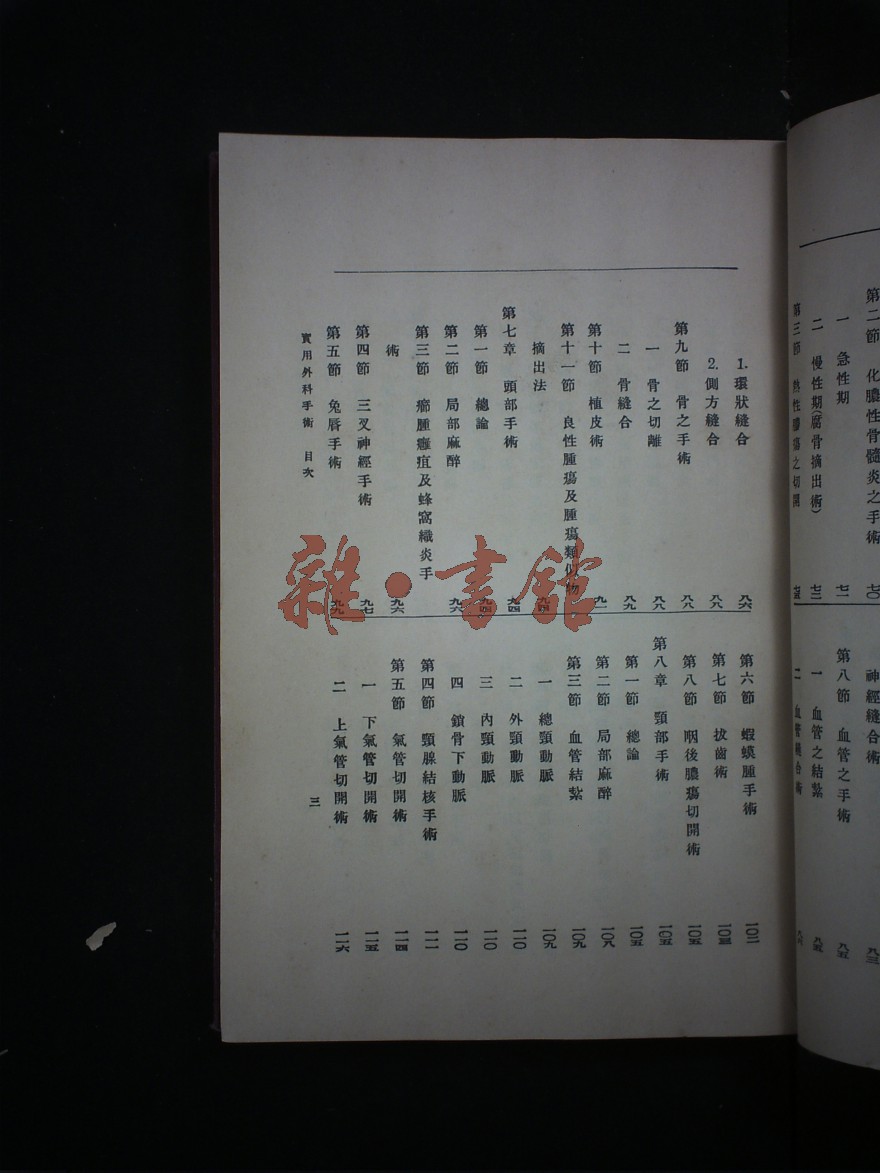 第二節　化膿性骨髓炎之手術　七〇
一　急性期　七一
二　慢性期（腐骨摘出術）　七三
第三節　熱性膿瘍之切開　七五
神經縫合術　八三
第八節　血管之手術　八五
一　血管之結紮　八五
二　血管縫合術
1. 環狀縫合　八六
2. 側方縫合　八八
第九節　骨之手術　八八
一　骨之切離　八八
二　骨縫合　八九
第十節　植皮術　九一
第十一節　良性腫瘍及腫瘍類似物
摘出法　九四
第七章　頭部手術　九四
第一節　總論　九四
第二節　局部麻醉　九六
第三節　癤腫癰疽及蜂窩織炎手
術　九六
第四節　三叉神經手術　九七
第五節　兔唇手術　九九
第六節　蝦蟆腫手術　一〇二
第七節　拔齒術　一〇三
第八節　咽後膿瘍切開術　一〇五
第八章　頸部手術　一〇五
第一節　總論　一〇五
第二節　局部麻醉　一〇八
第三節　血管結紮　一〇九
一　總頸動脈　一〇九
二　外頸動脈　一一〇
三　內頸動脈　一一〇
四　鎖骨下動脈　一一〇
第四節　頸腺結核手術　一一一
第五節　氣管切開術　一一四
一　下氣管切開術　一一五
二　上氣管切開術　一一六
實用外科手術　目次
三
雜·書館